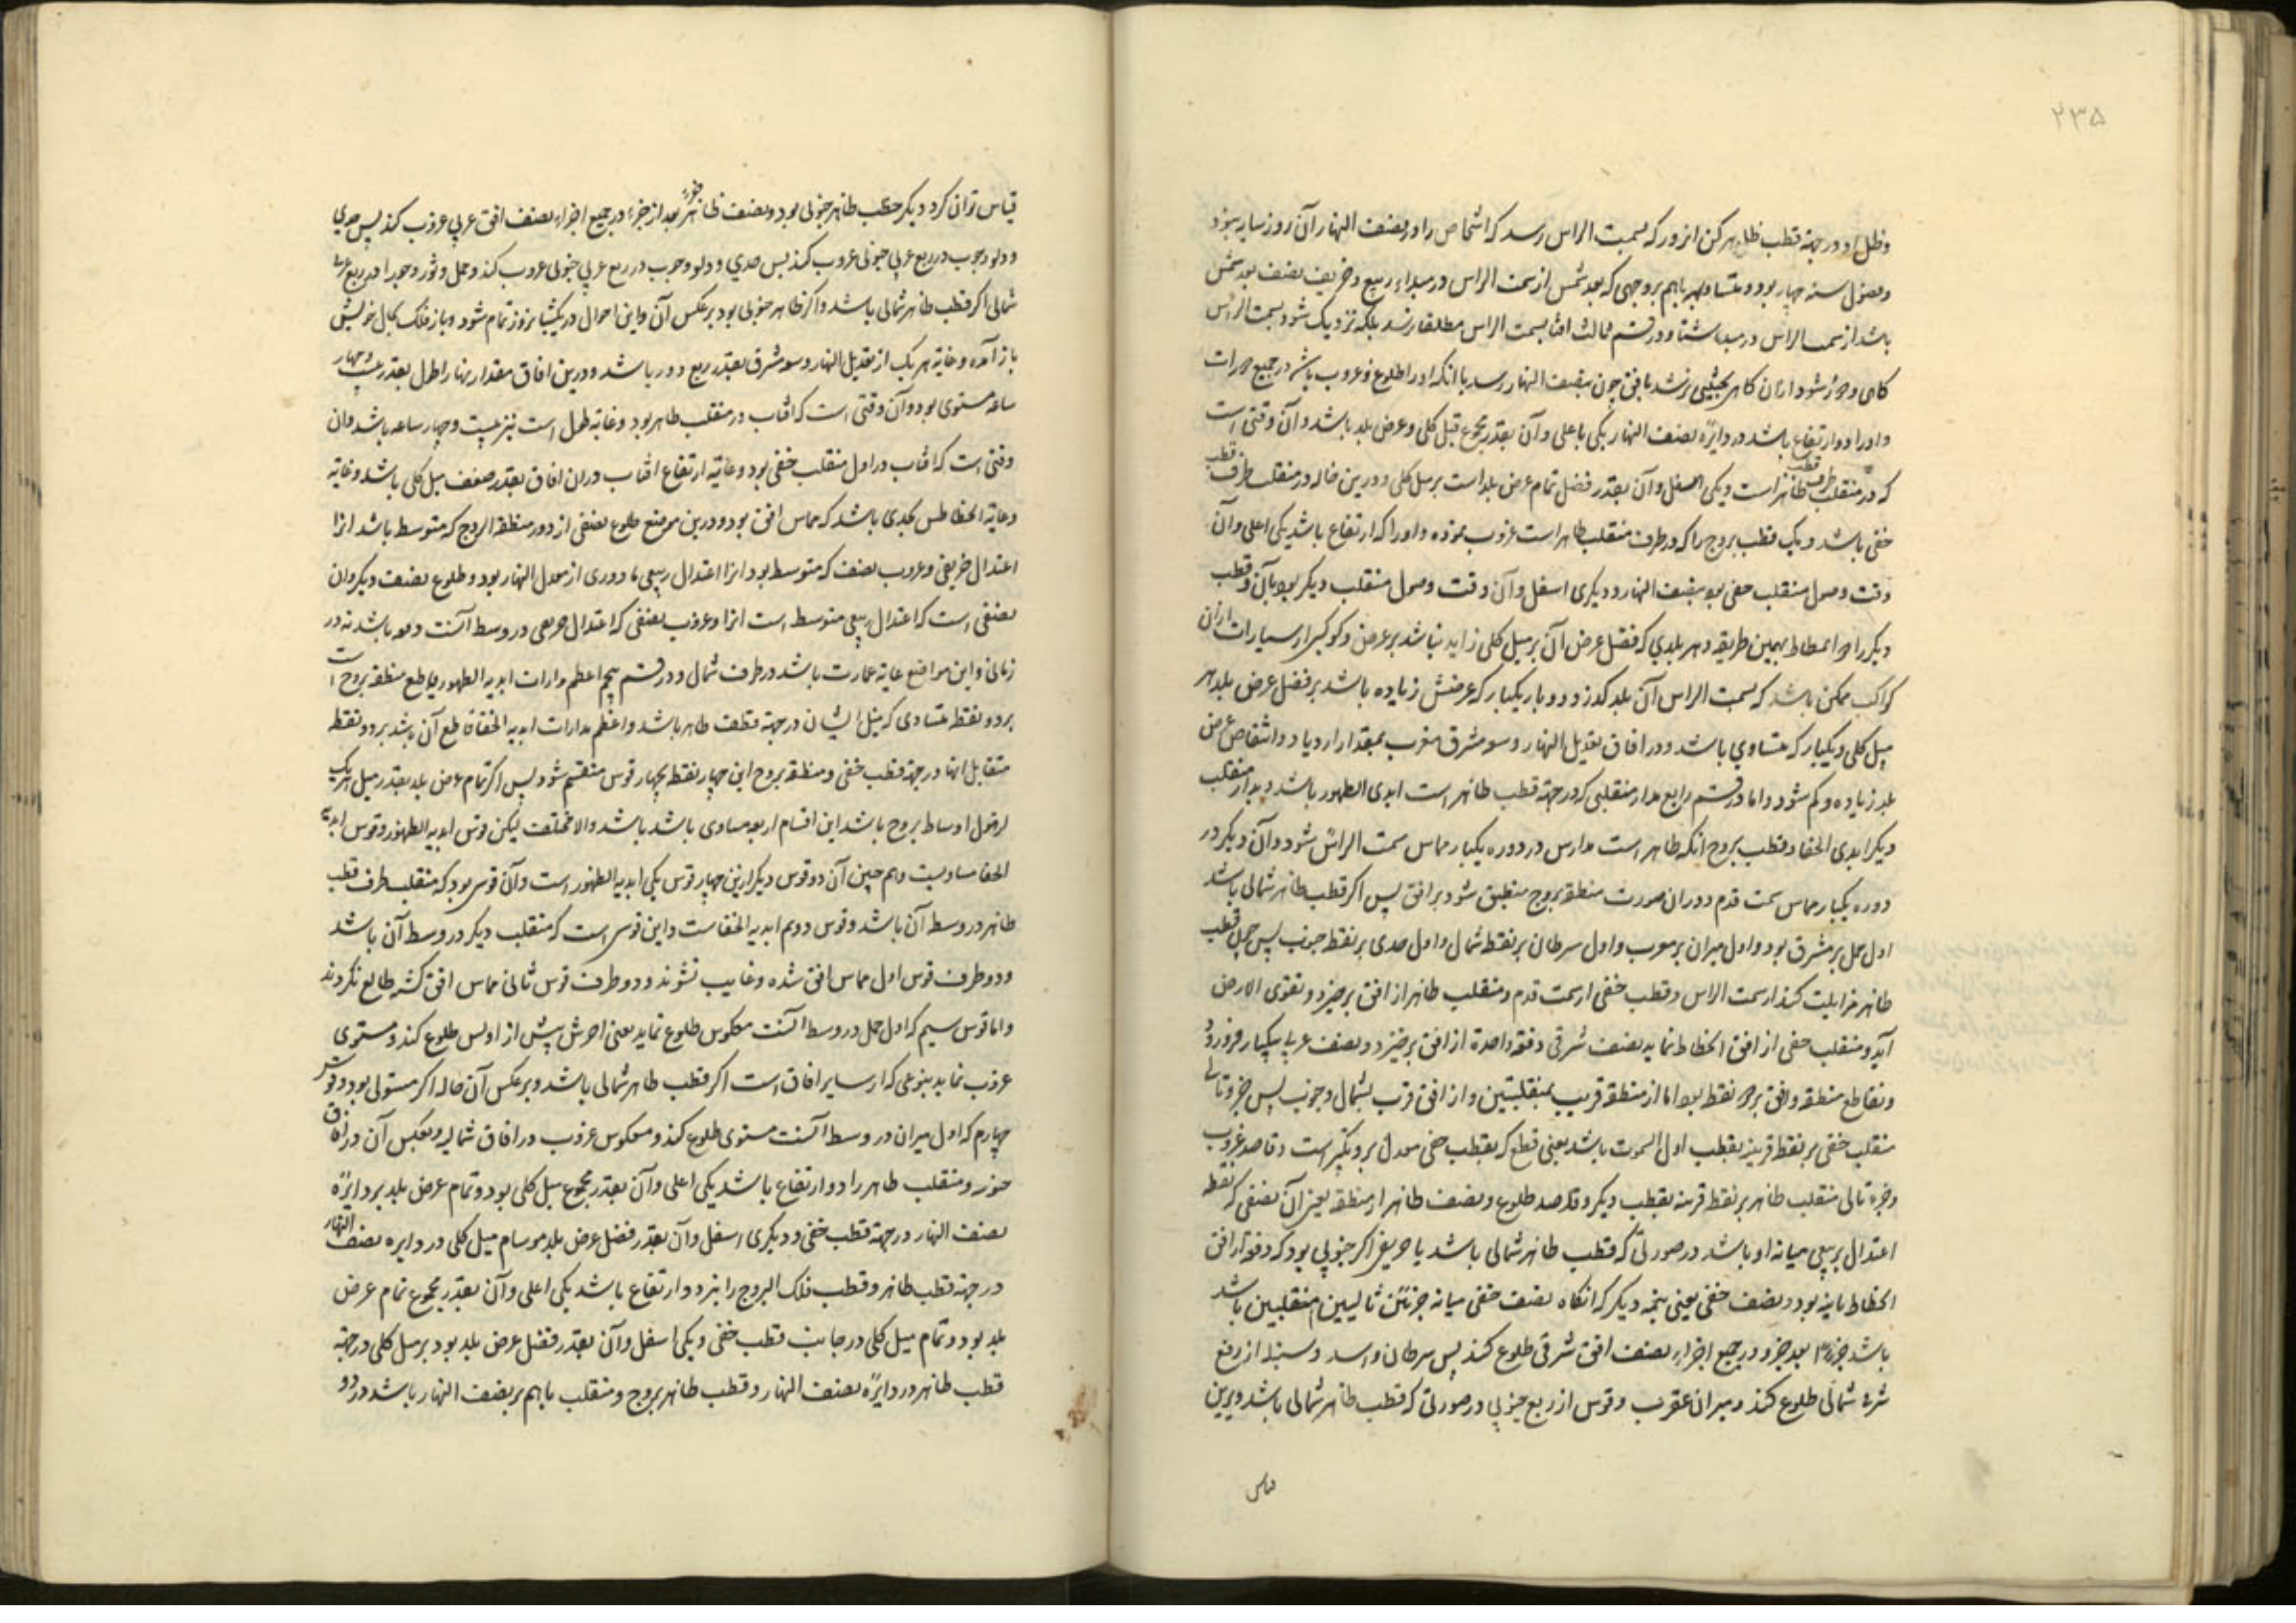 ۲۳۵
وظل او در جهة قطب ظاهر کن انروز که بسمت الراس رسد که اشخاص را در نصف النهار آن روز سایه نبود
وفصول سنه چهار بود و متساوی باهم بروجهی که بعد شمس از سمت الراس در مبداء ربیع و خریف نصف بعد شمس
باشد از سمت الراس در مبداء شتا و در قسم ثالث افتاب بسمت الراس مطلقا نرسد بلکه نزدیک شود بسمت الراس
کاهی و دور شود ازان کاهی بحیثیتی نرسد بافق چون بنصف النهار رسد با انکه او را طلوع و غروب باشد در جمیع دورات
و او را دو ارتفاع باشد در دایرهٔ نصف النهار یکی باعلی و آن بقدر مجموع میل کلی و عرض بلد باشد و آن وقتی است
که در منقلب طرف قطب ظاهر است و یکی اسفل و آن بقدر فضل تمام عرض بلد است بر میل کلی و درین حاله در منقلب طرف قطب
خفی باشد و یک قطب بروج را که در طرف منقلب ظاهر است غروب نبوده و او را که ارتفاع باشد یکی اعلی و آن
وقت وصول منقلب خفی بود بنصف النهار و دیکری اسفل و آن وقت وصول منقلب دیکر بود بآن و قطب
دیکر را دو انحطاط بهمین طریقه و هر بلدی که فضل عرض آن بر میل کلی زاید نباشد بر عرض کوکبی از سیارات ازان
کواکب ممکن باشد که بسمت الراس آن بلد کذرد و دو بار یکبار که عرضش زیاده باشد بر فضل عرض بلد بر
میل کلی و یکبار که متساوی باشد و در افاق تعدیل النهار و سعه مشرق و مغرب بمقدار ازدیاد و انتقاص عرض
بلد زیاده و کم شود و اما در قسم رابع مدار منقلبی که در جهة قطب ظاهر است ابدی الظهور باشد و مدار منقلب
دیکر ابدی الخفا و قطب بروج انکه ظاهر است مدارس در دوره یکبار مماس سمت الراس شود و آن دیکر در
دوره یکبار مماس سمت قدم و دران صورت منطقه بروج منطبق شود بر افق پس اکر قطب ظاهر شمالی باشد
اول حمل بر مشرق بود و اول میزان بر مغرب و اول سرطان بر نقطه شمال و اول جدی بر نقطه جنوب پس چون قطب
ظاهر مزایلت کند از سمت الراس و قطب خفی از سمت قدم و منقلب ظاهر از افق برخیزد و بفوق الارض
آید و منقلب خفی از افق انحطاط نماید نصف شرقی دفعة واحدة از افق برخیزد و نصف غربی بیکبار فرورود
و تقاطع منطقه و افق بر دو نقطه بود اما از منطقه قریب بمنقلبین و از افق قرب بشمال و جنوب پس جزو تالی
منقلب خفی بر نقطه قریبه بقطب اول السموت باشد یعنی که بقطب خفی معدل نزدیکتر است و قاصد غروب
و جزء تالی منقلب ظاهر بر نقطه قریبه بقطب دیکر و قاصد طلوع و نصف ظاهر از منطقه یعنی آن نصفی که نقطه
اعتدال ربیعی میانه او باشد در صورتی که قطب ظاهر شمالی باشد یا خریفی اکر جنوبی بود که دفعة از افق
انحطاط یافته بود و نصف خفی یعنی نیمه دیکر که انکاه نصف خفی میانه جزئین تالیین منقلبین باشد
باشد جزءاً بعد جزو در جمیع اجزاء نصف افق شرقی طلوع کند پس سرطان و اسد و سنبله از ربع
شرقی شمالی طلوع کند و میزان عقرب و قوس از ربع جنوبی در صورتی که قطب ظاهر شمالی باشد و برین
قیاس
قیاس توان کرد و دیکر قطب ظاهر جنوبی بود و نصف ظاهر جزوء بعد از جزء در جمیع اجزاء نصف افق غربی غروب کند پس جدی
و دلو و حوت در ربع غربی جنوبی غروب کند پس جدی و دلو و حوت در ربع غربی جنوبی غروب کند و حمل و ثور و جوزا در ربع غربی
شمالی اکر قطب ظاهر شمالی باشد و اکر ظاهر جنوبی بود بر عکس آن و این احوال در یکشبانروز تمام شود و باز فلک بحال خویش
باز آمده و غایه هر یک از تعدیل النهار و سعه مشرق بقدر ربع دور باشد و درین افاق مقدار نهار اطول بقدر بیست و چهار
ساعه مستوی بود و آن وقتی است که افتاب در منقلب ظاهر بود و غایه طول است نیز بیست و چهار ساعه باشد و ان
وقتی است که افتاب در اول منقلب خفی بود و غایه ارتفاع افتاب دران افاق بقدر ضعف میل کلی باشد و غایه
و غایه انحطاطش بحدی باشد که مماس افق بود و درین موضع طلوع نصفی از دور منطقة البروج که متوسط باشد انرا
اعتدال خریفی و غروب نصف که متوسط بود انرا اعتدال ربیعی با دوری از معدل النهار بود و طلوع نصف دیکر و ان
نصفی است که اعتدال ربیعی متوسط است انرا و غروب نصفی که اعتدال خریفی در وسط آنست دفعه باشد نه در
زمانی و این مواضع غایه عمارت باشد در طرف شمال و در قسم پنجم اعظم مدارات ابدیه الظهور قاطع منطقه بروج است
بر دو نقطه متساوی که میل ایشان در جهة قطب ظاهر باشد و اعظم مدارات ابدیه الخفا قاطع آن باشد بر دو نقطه
متقابل انها در جهة قطب خفی و منطقه بروج این چهار نقطه بچهار قوس منقسم شود پس اکر تمام عرض بلد بقدر میل هر یک
از فصول اوساط بروج باشد این اقسام اربعه مساوی باشد باشد والا مختلفت لیکن قوس ابدیه الظهور و قوس ابدیه
الخفا مساویست و هم چنین آن دو قوس دیکر ازین چهار قوس یکی ابدیه الظهور است و آن قوسی بود که منقلب طرف قطب
ظاهر در وسط آن باشد و قوس دویم ابدیه الخفاست و این قوسی است که منقلب دیکر در وسط آن باشد
و دو طرف قوس اول مماس افق شده و غایب نشوند و دو طرف قوس ثانی مماس افق کشته طالع نکردند
و اما قوس سیم که اول حمل در وسط آنست معکوس طلوع نماید یعنی اخرش پیش از اولش طلوع کند و مستوی
غروب نماید بنوعی که از سایر افاق است اکر قطب ظاهر شمالی باشد و بر عکس آن حاله اکر مستولی بود و قوس
چهارم که اول میزان در وسط آنست مستوی طلوع کند و معکوس غروب در افاق شمالیه و بعکس آن در افاق
جنوبی و منقلب ظاهر را دو ارتفاع باشد یکی اعلی و آن بقدر مجموع میل کلی بود و تمام عرض بلد بر دایرهٔ
نصف النهار در جهة قطب خفی و دیکری اسفل و آن بقدر فضل عرض بلد بر تمام میل کلی در دایره نصف النهار
در جهة قطب ظاهر و قطب فلک البروج را نیز دو ارتفاع باشد یکی اعلی و آن بقدر مجموع تمام عرض
بلد بود و تمام میل کلی در جانب قطب خفی و یکی اسفل و آن بقدر فضل عرض بلد بود بر میل کلی در جهة
قطب ظاهر در دایرهٔ نصف النهار و قطب ظاهر بروج و منقلب باهم بر نصف النهار باشد در دو